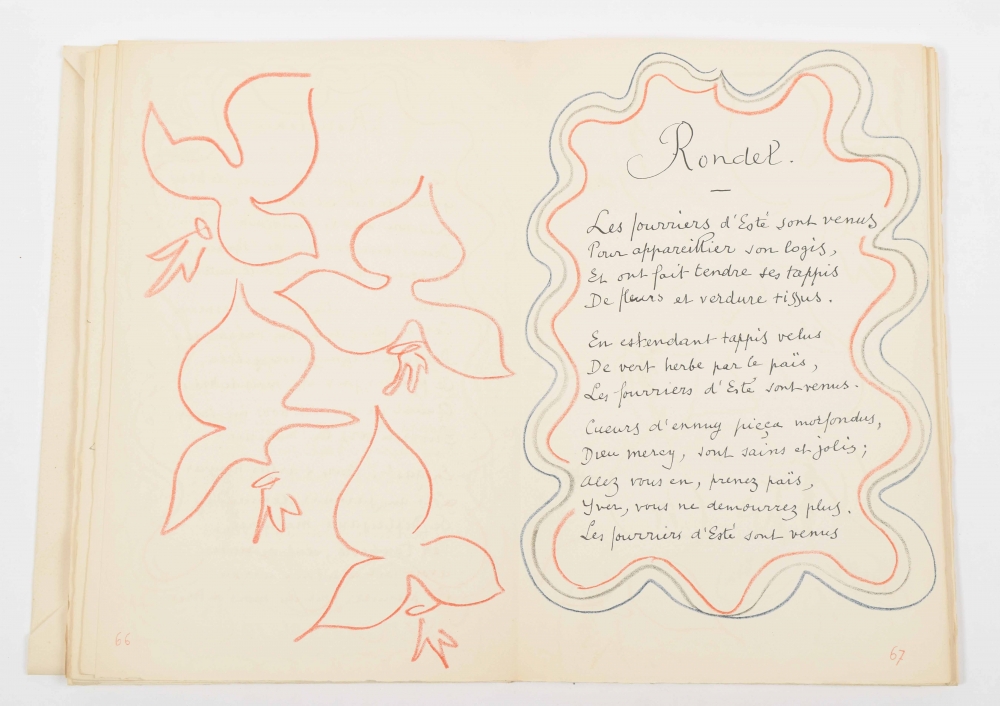 66
Rondel.
Les fourriers d'Esté sont venus
Pour appareillier son logis,
Et ont fait tendre ses tappis
De fleurs et verdure tissus.
En estendant tappis velus
De vert herbe par le païs,
Les fourriers d'Esté sont venus.
Cueurs d'ennuy pieça morfondus,
Dieu mercy, sont sains et jolis;
Alez vous en, prenez païs,
Yver, vous ne demourrez plus.
Les fourriers d'Esté sont venus
67